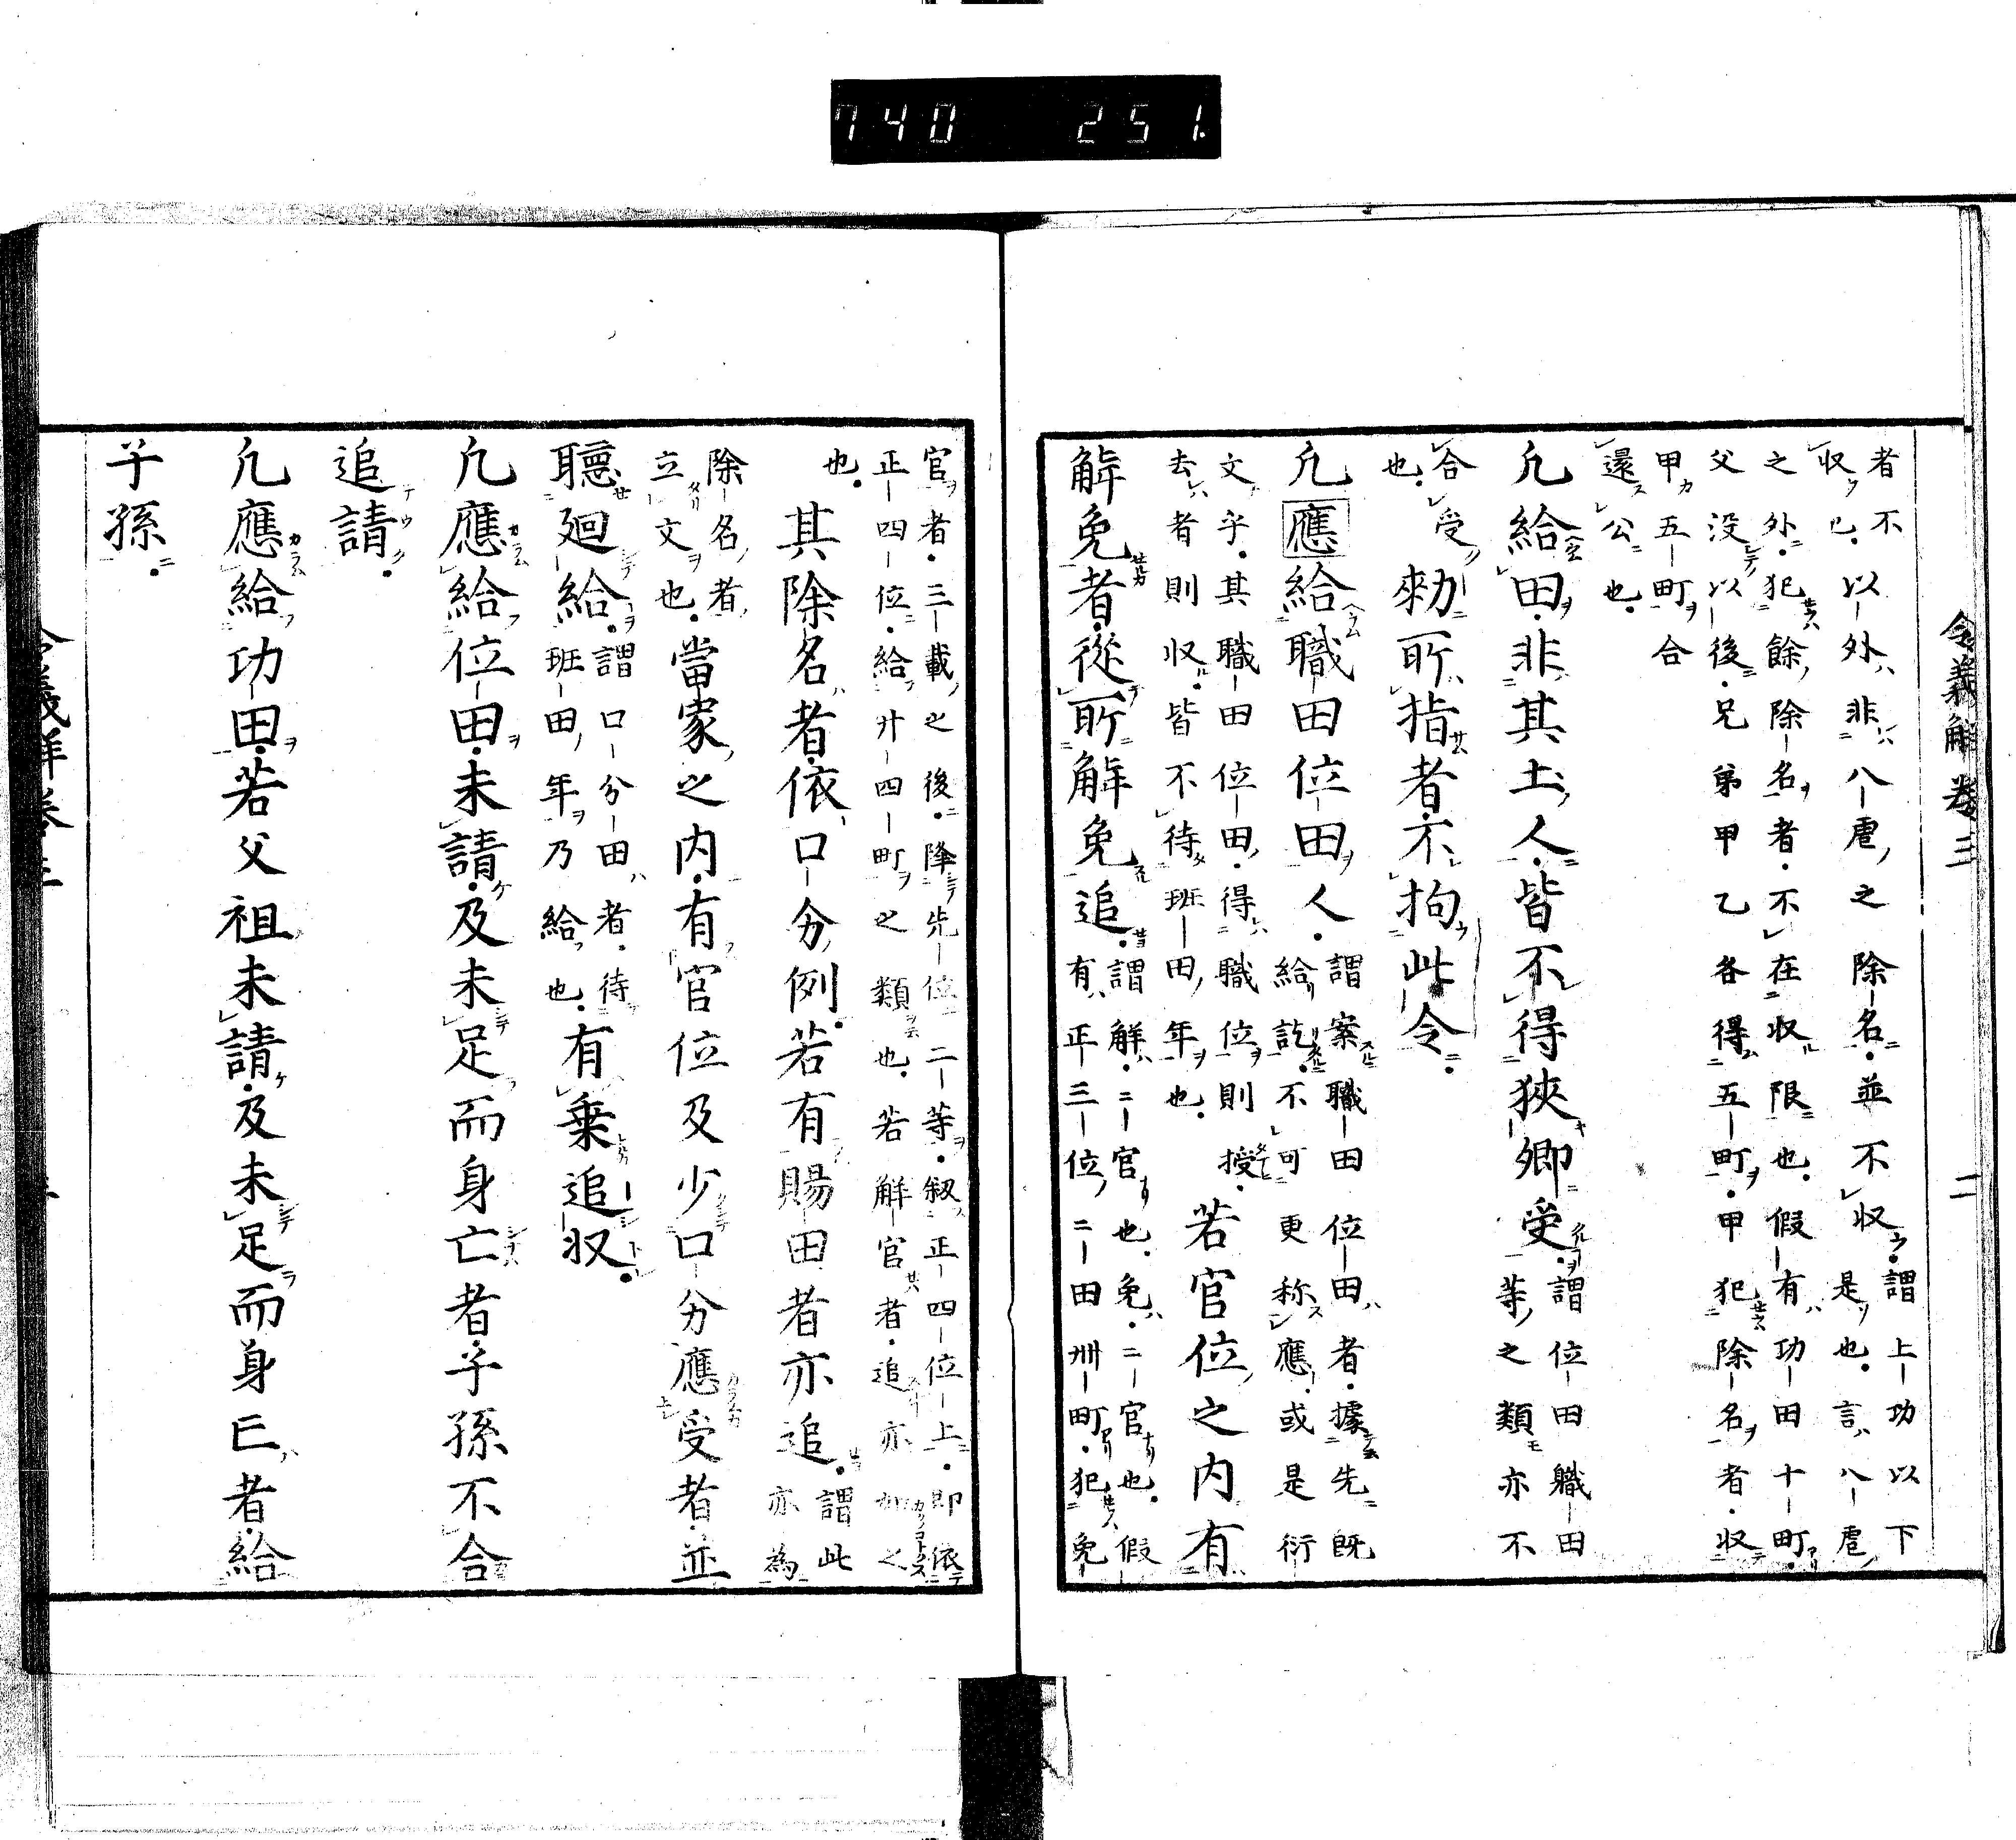 740 251
令義解卷三 二
者不以外非八虐之除名並不收謂上功以下
收已是也言八虐
之外犯餘除名者不在收限也假有功田十町
父没以後兄弟甲乙各得五町甲犯除名者收
甲五町合
還公也
凢給田非其土人皆不得狹郷受謂位田職田
等之類亦不
合受
也勑所指者不拘此令
凢應給職田位田人謂案職田位田者據先既
給訖不可更称應或是衍
文乎其職田位田得職位則授
去者則収皆不待班田年也若官位之内有
解免者從所解免追謂解二官也免二官也假
有正三位二田卌町犯免
官者三載之後降先位二等叙正四位上即依
正四位給廾四町之類也若解官者追亦如之
也其除名者依口分例若有賜田者亦追謂此
亦為
除名者
立文也當家之内有官位及少口分應受者並
聽廻給謂口分田者待
班田年乃給也有乗追収
凢應給位田未請及未足而身亡者子孫不合
追請
凢應給功田若父祖未請及未足而身亡者給
子孫